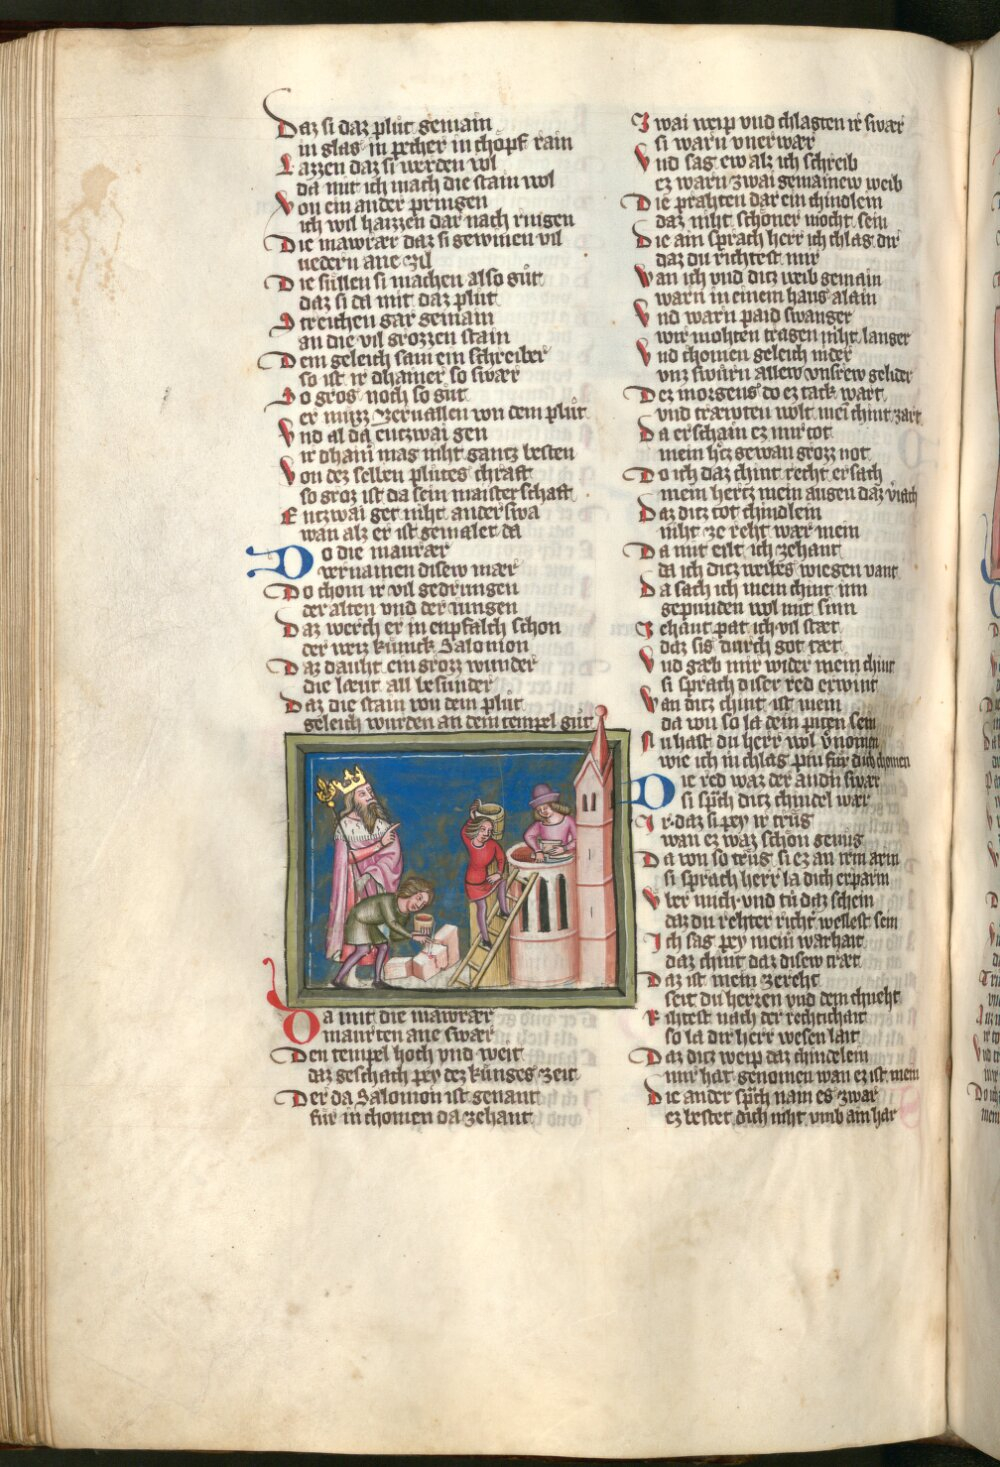 Daz si daz plůt gemain
in glas in pecher in chöpf rain
Lazzen daz si werden vol
da mit ich mach die stain wol
Von ein ander pringen
ich wil haizzen dar nach ringen
Die mawrær daz si gewinnen vil
vedern ane zil
Die sullen si machen also gůt
daz si da mit daz plůt
Streichen gar gemain
an die vil grozzen stain
Dem geleich sam ein schreiber
so ist ir dhainer so swær
So gros noch so gut
er muzz zervallen von dem plůt
Vnd al da entzwai gen
ir dhain mag niht gantz besten
Von dez selben plůtes chraft
so groz ist da sein maisterschaft
Entzwai get niht anderswa
wan alz er ist gemalet da
Do die maurær
vernamen disew mær
Do chom ir vil gedrungen
der alten vnd der iungen
Daz werch er in enpfalch schon
der weiz künick Salomon
Daz daucht ein grozz wunder
die lœut all besunder
Daz die stain von dem plůt
geleich wurden an dem tempel gůt
Da mit die mawrær
maurten ane swær
Den tempel hoch vnd weit
daz geschach pey dez künges zeit
Der da Salomon ist genant
für in chomen da zehant
Zwai weip vnd chlagten ir swær
si warn vnerwær
Vnd sag ew alz ich schreib
ez warn zwai gemainew weib
Die prahten dar ein chindlein
daz niht schöner mocht sein
Die ain sprach herr ich chlag dir
daz du richtest mir
Wan ich vnd ditz weib gemain
warn in einem haus alain
Vnd warn paid swanger
wir mohten tragen niht langer
Vnd chomen geleich nider
vnz swůrn allew vnsrew gelider
Dez morgens do ez tack wart
vnd træwten wolt mein chint zart
Da erschain ez mir tot
mein hertz gewan grozz not
Do ich daz chint recht ersach
mein hertz mein augen daz veriach
Daz ditz tot chindlein
niht ze reht wær mein
Da mit eilt ich zehant
da ich ditz weibes wiegen vant
Da sach ich mein chint inn
gepunden wol mit sinn
Zehant pat ich vil stæt
daz sis durch got tæt
Vnd gæb mir wider mein chint
si sprach diser red erwint
Wan ditz chint ist mein
da von so la dein piten sein
Nu hast du herr wol vernomen
wie ich in chlag pin für dich chomen
Die red waz der andern swær
si sprach ditz chindel wær
Ir daz si pey ir trůg
wan ez waz schön genůg
Da von so trůg si ez an irm arm
si sprach herr la dich erparm
Vber mich vnd tů daz schein
daz du rehter richter wellest sein
Ich sag pey meiner warhait
daz chint daz disew træt
Daz ist mein ze reht
seit du herren vnd dem chneht
Rihtest nach der rechtichait
so la dir herr wesen lait
Daz ditz weip daz chindelein
mir hat genomen wan ez ist mein
Die ander sprach nain es zwar
ez bestet dich niht vmb ain har